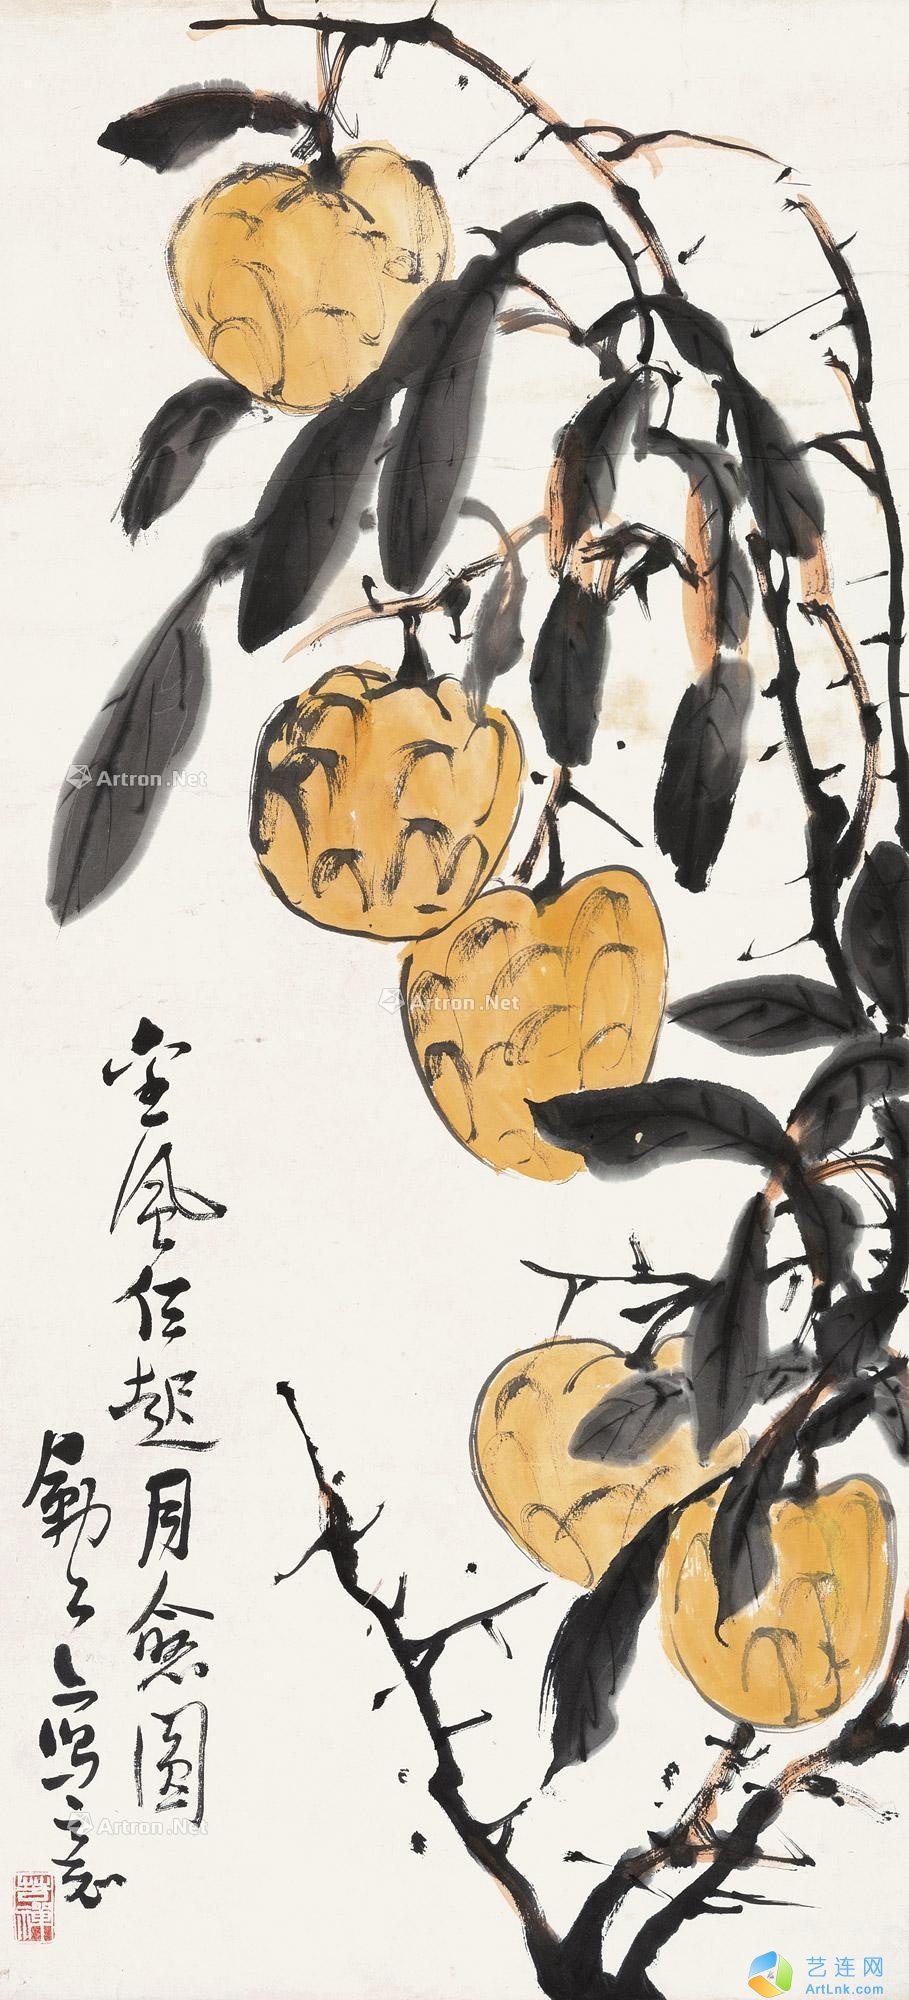 金風任起月愈圓
勵公写意
苦禪
Artron.Net
Artron.Net
Artron.Net
艺连网
ArtLnk.com